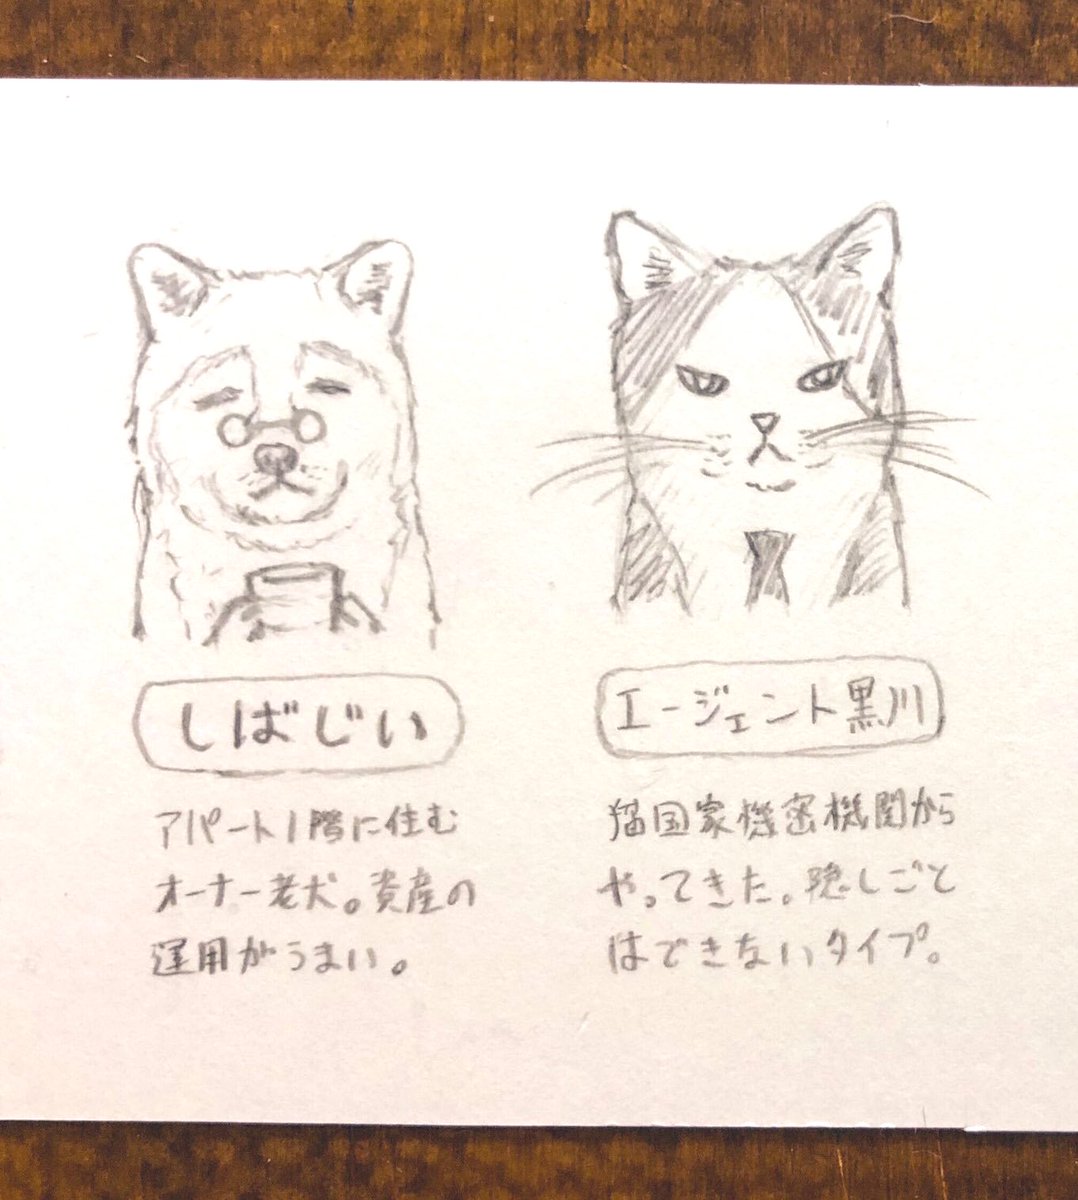 しばじい
アパート1階に住む
オーナー老犬。資産の
運用がうまい。
エージェント黒川
猫国家機密機関から
やってきた。隠しごと
はできないタイプ。